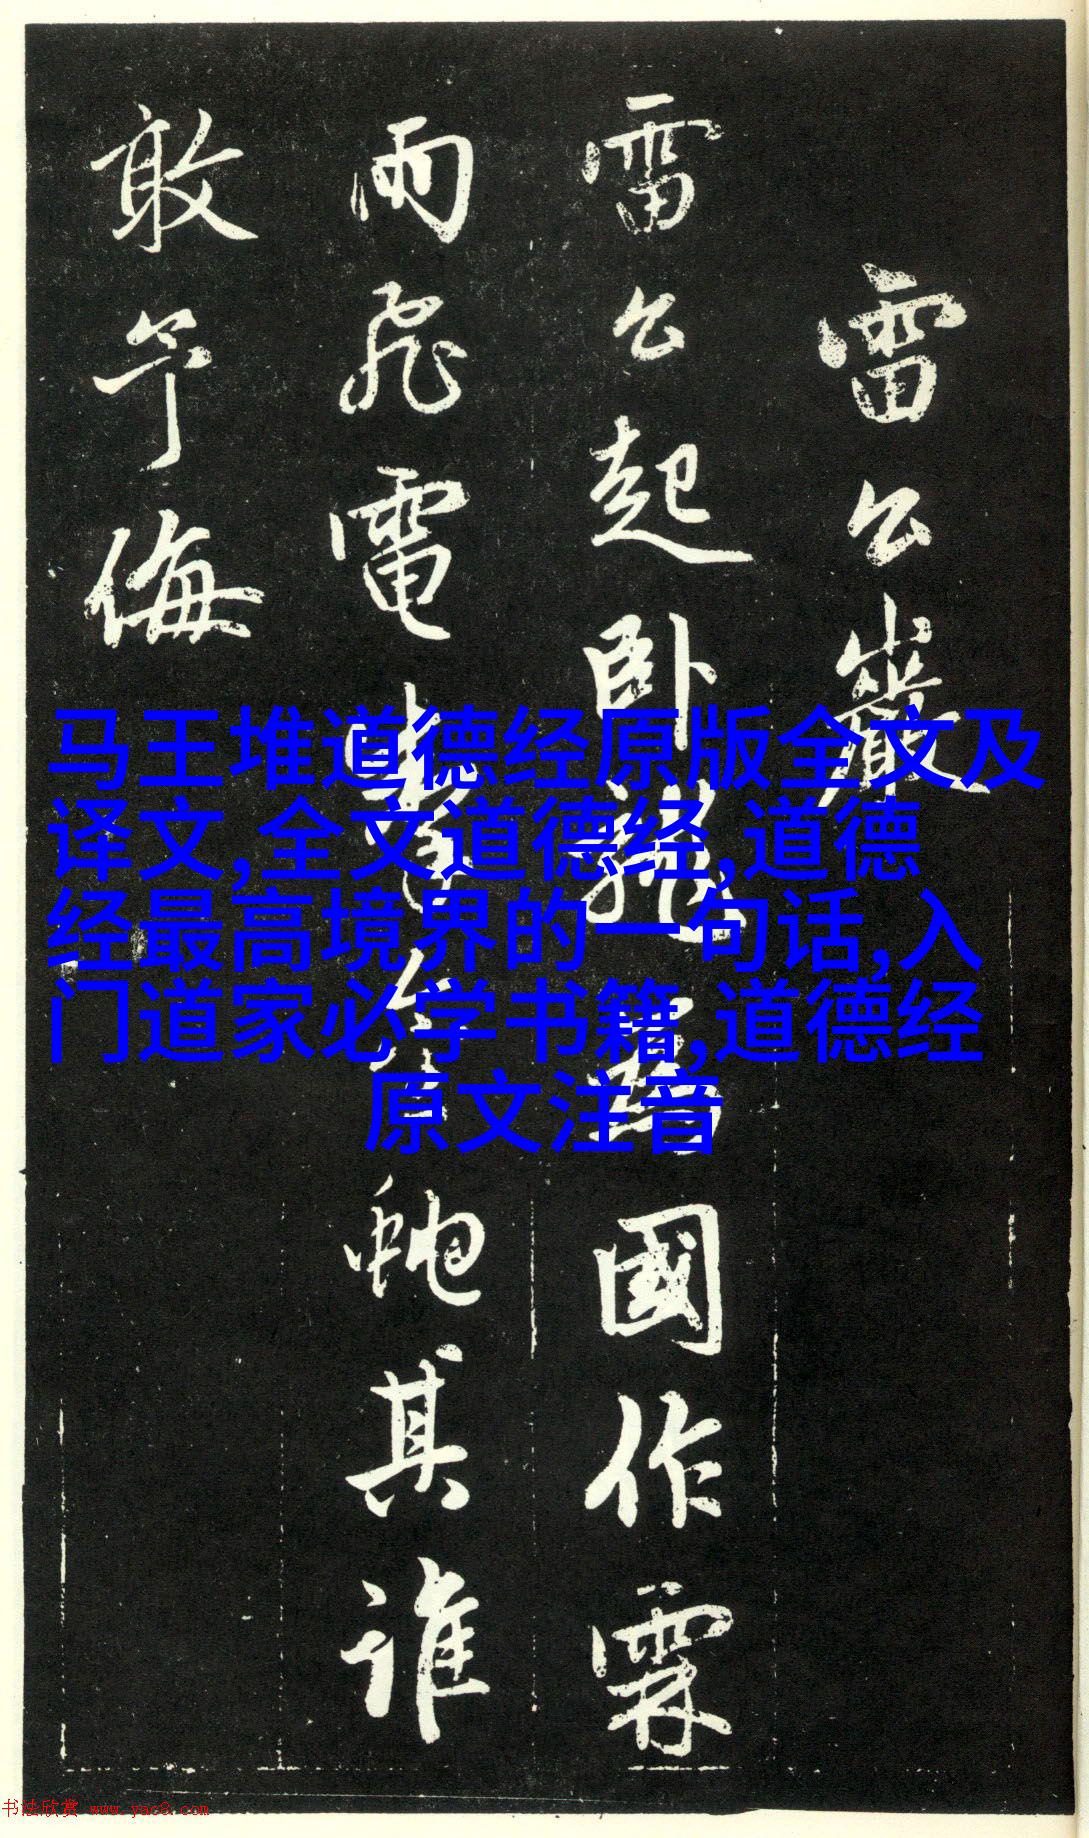 雷公巖
雷公起卧龍為國作霖
雨飛電掣金虵其誰
敢予侮
马王堆道德经原版全文及
译文,全文道德经,道德
经最高境界的一句话,入
门道家必学书籍,道德经
原文注音
书法欣赏 www.yac8.com